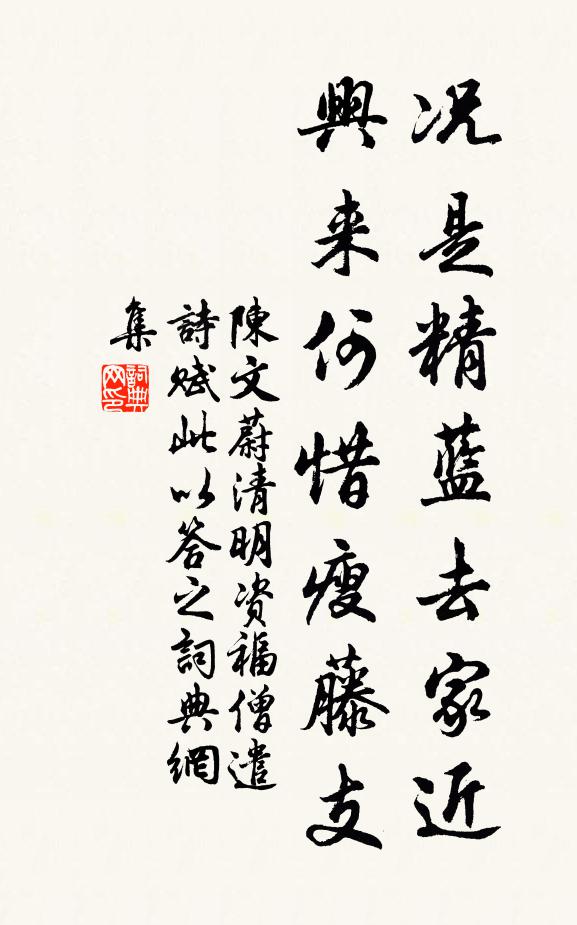 况是精蓝去家近
興来何惜瘦藤支
陳文蔚清明资福僧遣
詩賦此以答之詞典網
集
詞典
网印